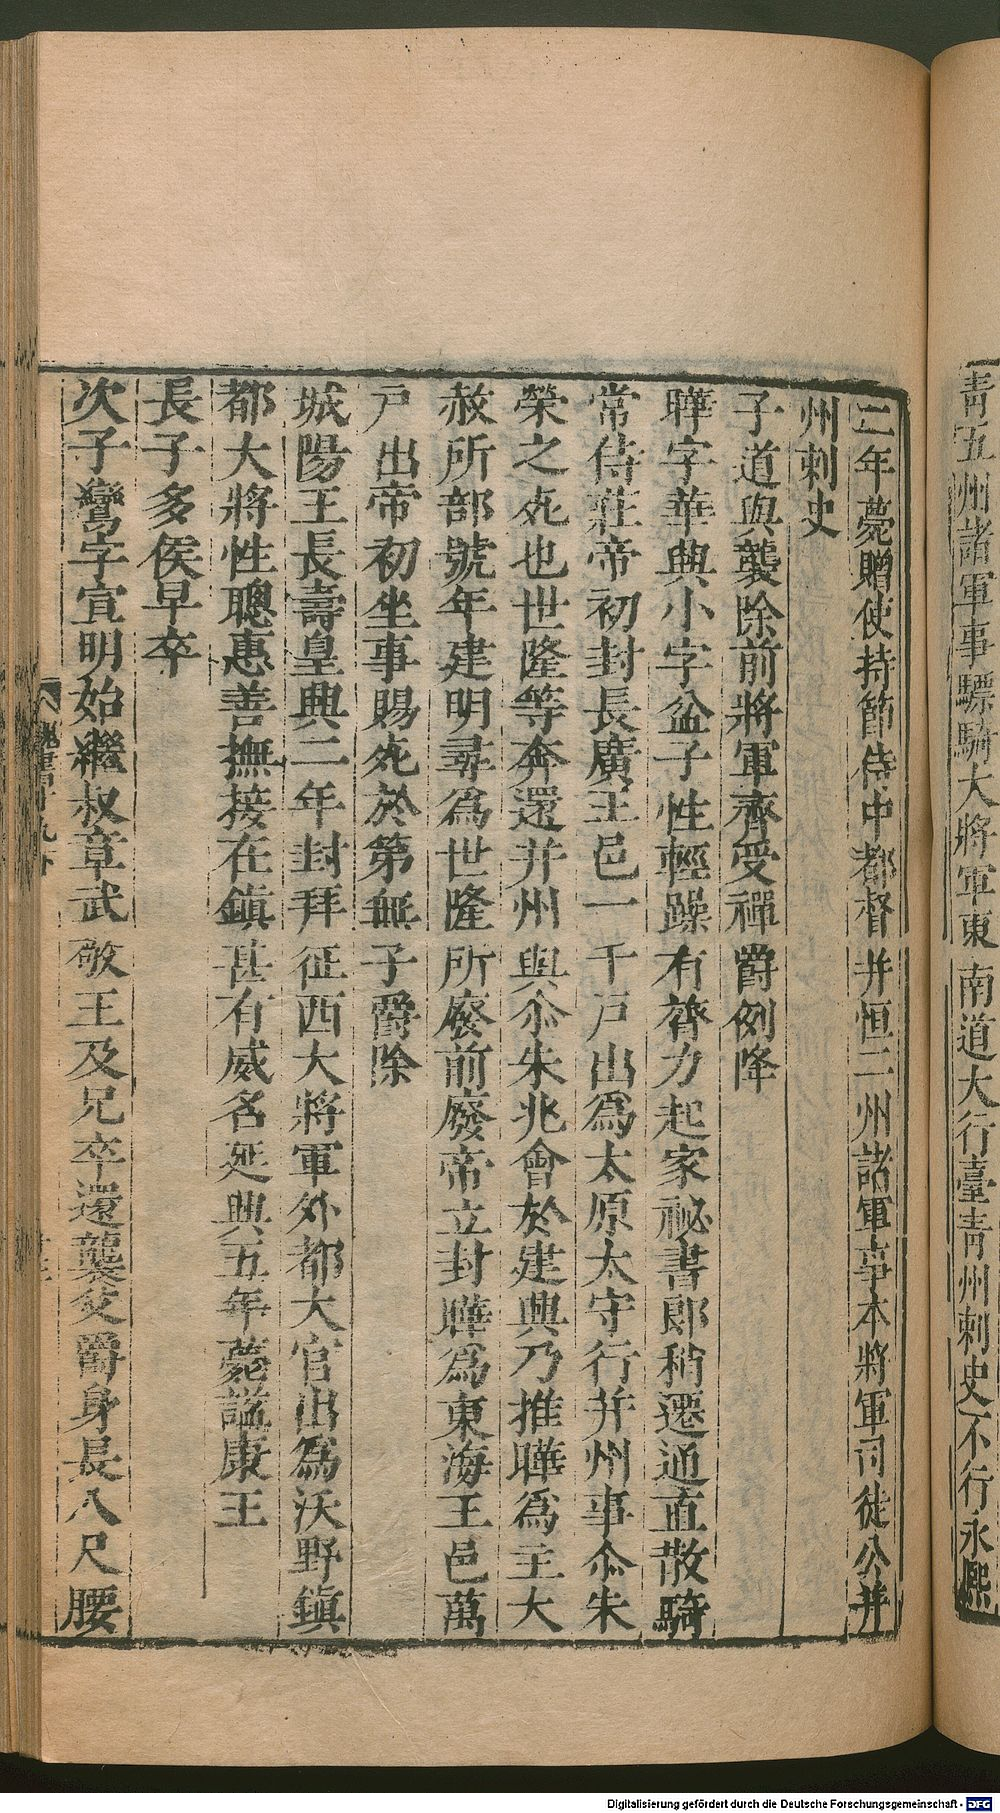 青五州諸軍事驃騎大將軍東南道大行臺青州刺史不行永熙
二年薨贈使持節侍中都督并恒二州諸軍事本將軍司徒公并
州刺史
子道與襲除前將軍齊受禪爵例降
曄字華興小字盆子性輕躁有膂力起家祕書郎稍遷通直散騎
常侍莊帝初封長廣王邑一千戸出爲太原太守行并州事尒朱
榮之死也世隆等奔還并州與尒朱兆會於建興乃推曄爲主大
赦所部號年建明尋爲世隆所廢前廢帝立封曄爲東海王邑萬
戸出帝初坐事賜死於第無子爵除
城陽王長壽皇興二年封拜征西大將軍外都大官出爲沃野鎮
都大將性聰惠善撫接在鎮甚有威名延興五年薨諡康王
長子多侯早卒
次子鸞字宣明始繼叔章武敬王及兄卒還襲父爵身長八尺腰
Digitalisierung gefördert durch die Deutsche Forschungsgemeinschaft - DFG